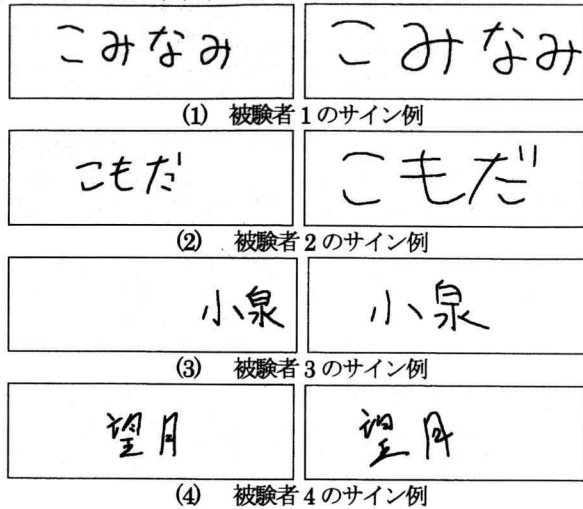 こみなみ こみなみ
(1) 被験者1のサイン例
こもだ こもだ
(2) 被験者2のサイン例
小泉 小泉
(3) 被験者3のサイン例
望月 望月
(4) 被験者4のサイン例